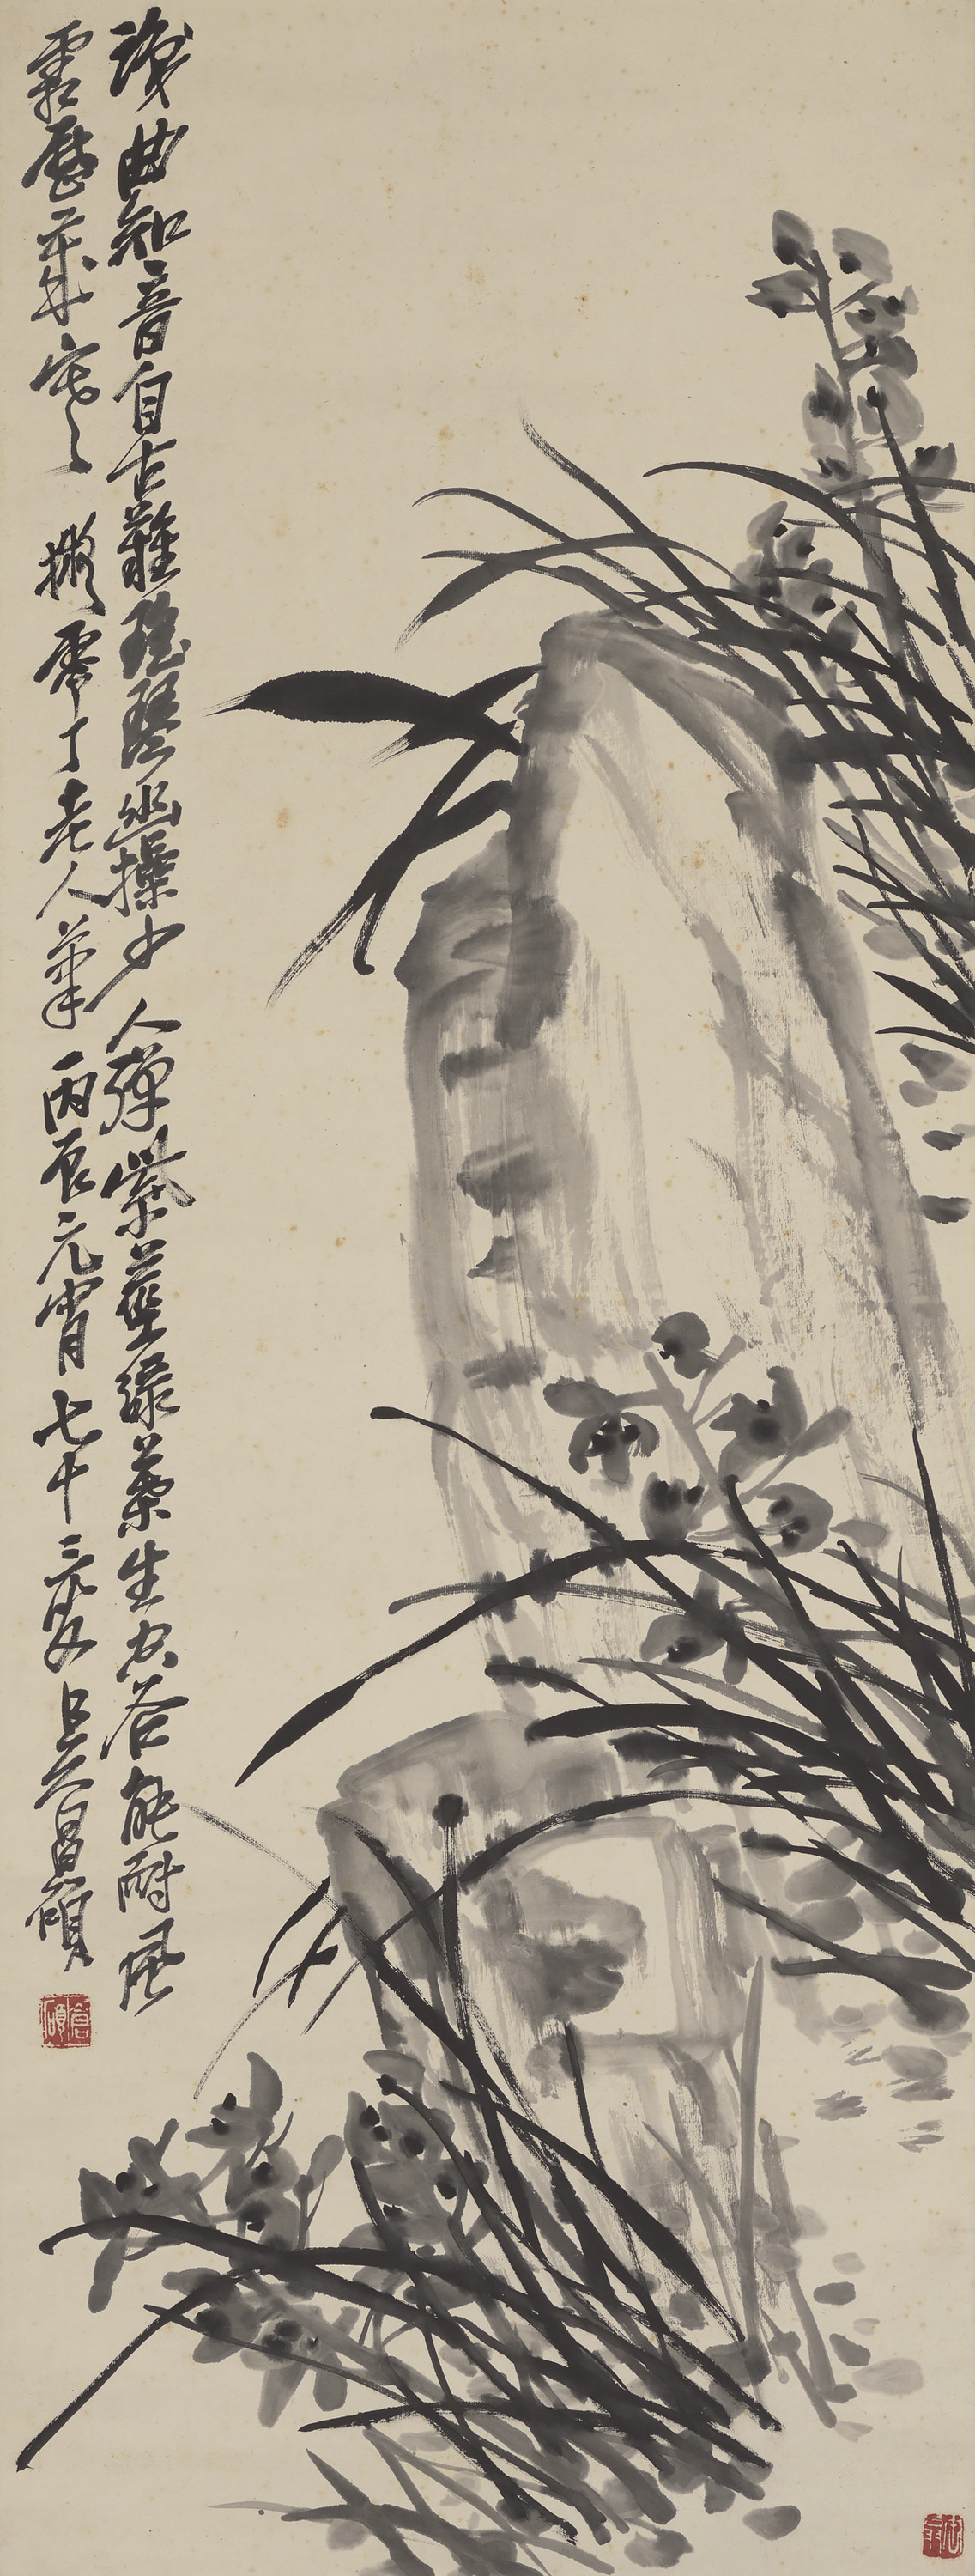 識曲知音自古難瑤琴幽操少人彈紫莖綠葉生空谷能耐風
霜歷歲寒擬零丁老人筆丙辰元宵七十三叟吳昌碩
倉碩